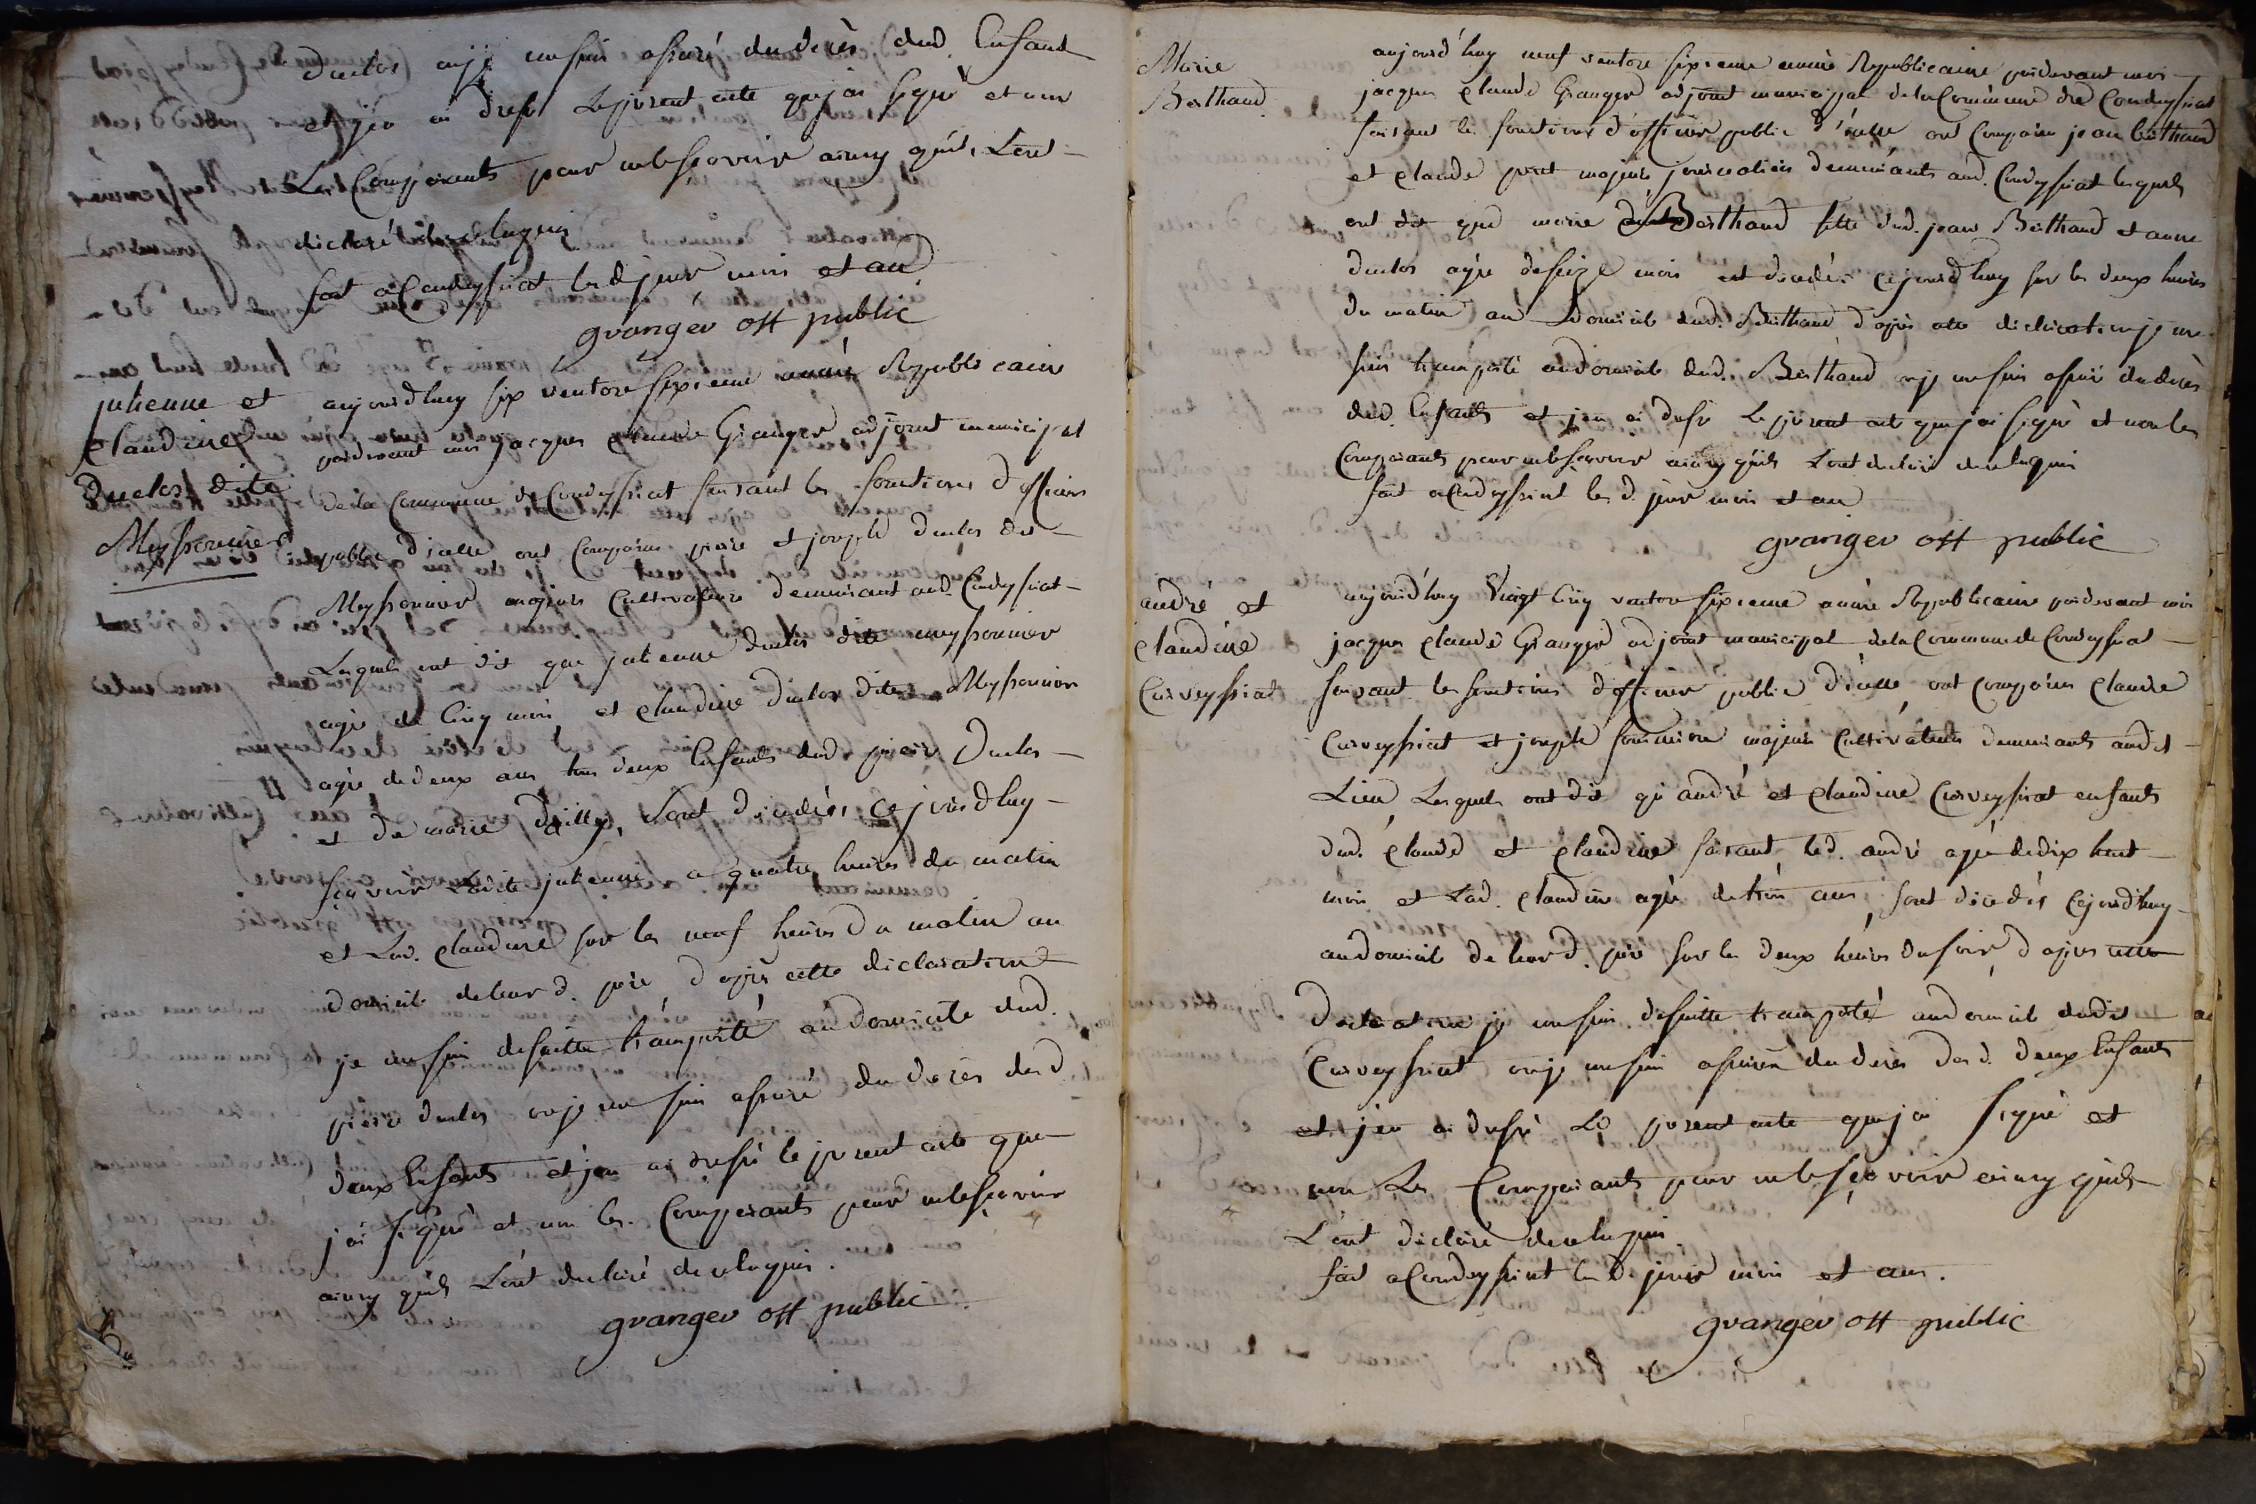 duclos ouje me suis assuré du deces dud. Enfant
et j'en ai dressé le present acte que jai signé et non
Les Comparants pour ne le sçavoir ainsy quils L'ont
declaré de ce Enquis
fait a Condeyssiat les d. jour mois et an
granger off public
julienne et
claudine
Duclos dite
Meyssonnier
aujourdhuy six ventose sixieme année Republicaine
pardevant moi jacques claude Granger adjoint municipal
de la Commune de Condeyssiat faisant les fonctions d'officier
public d'icelle ont Comparu pierre et joseph duclos dit
Meyssonnier majeurs Cultivateurs demeurant aud. Condeyssiat
Lesquels ont dit que julienne duclos dite meyssonnier
agée de Cinq mois et claudine duclos dite Meyssonnier
agée de deux ans tous deux Enfants dud. pierre Duclos
et de marie sont decedées Cejourdhuy
sçavoir Ladite julienne a quatre heures du matin
et Lad. claudine sur les neuf heures du matin au
domicile de leur d. pere d'apres cette declaration
je me suis desuitte transporté au domicile dud.
pierre duclos ouje me suis assuré du deces desd.
deux Enfants et j'en ai dressé le present acte que
j'ai signé et non les Comparants pour ne le sçavoir
ainsy quils L'ont declaré de ce Enquis.
granger off public
Marie
Berthaud
aujourd'huy neuf ventose sixieme année Republicaine pardevant moi
jacques claude Granger adjoint municipal de la Commune de Condeyssiat
faisant les fonctions d'officier public d'icelle ont Comparu jean Berthaud
et claude majeurs journaliers demeurants aud. Condeyssiat lesquels
ont dit que marie Berthaud fille dud. jean Berthaud et anne
duclos agée de seize mois est decedée Cejourdhuy sur les deux heures
du matin au Domicile dud. Berthaud d'apres cette declaration je me
suis transporté au domicile dud. Berthaud ouje me suis assuré du deces
dud. Enfant et j'en ai dressé le present acte que jai signé et non les
Comparants pour ne le sçavoir ainsy quils L'ont declaré de ce Enquis
fait a Condeyssiat les d. jour mois et an
granger off public
andré et
claudine
Curveyssiat
aujourd'huy Vingt Cinq ventose sixieme année Republicaine pardevant moi
jacques claude Granger adjoint municipal de la Commune de Condeyssiat
faisant les fonctions d'officier public d'icelle ont Comparu claude
Curveyssiat et joseph majeurs Cultivateurs demeurants audit
Lieu Lesquels ont dit qu'andré et claudine Curveyssiat enfants
dud. claude et claudine le d. andré agé de dix huit
mois et Lad. claudine agée de trois ans sont decedés Cejourdhuy
au domicile de leur d. pere sur les deux heures du soir d'apres cette
declaration je me suis desuitte transporté au domicile dudit
Curveyssiat ouje me suis assuré du deces desd. deux Enfants
et j'en ai dressé Le present acte que jai signé et
non Les Comparants pour ne le sçavoir ainsy quils
L'ont declaré de ce Enquis.
fait a Condeyssiat les d. jour mois et an.
granger off public